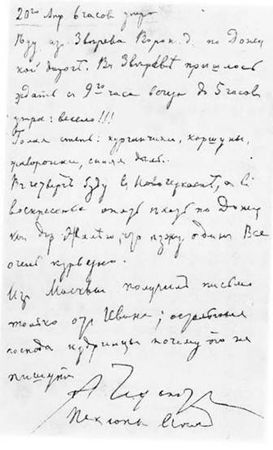 20го Апр 6 часов утра
Еду из Зверева Ворон. д. по Донец
кой дороге. В Звереве пришлось
ждать с 9го часа вечера до 5 часов
утра: весело!!!
Голая степь: курганчики, коршуны,
жаворонки, синяя даль..
В четверг буду в Новочеркасске, а в
воскресенье опять по Донец
кой дор. Жалею, что езжу один. Все
очень курьезно.
Из Москвы получил письмо
только от Ивана; остальные
господа почему то не
пишут.
А Чехов